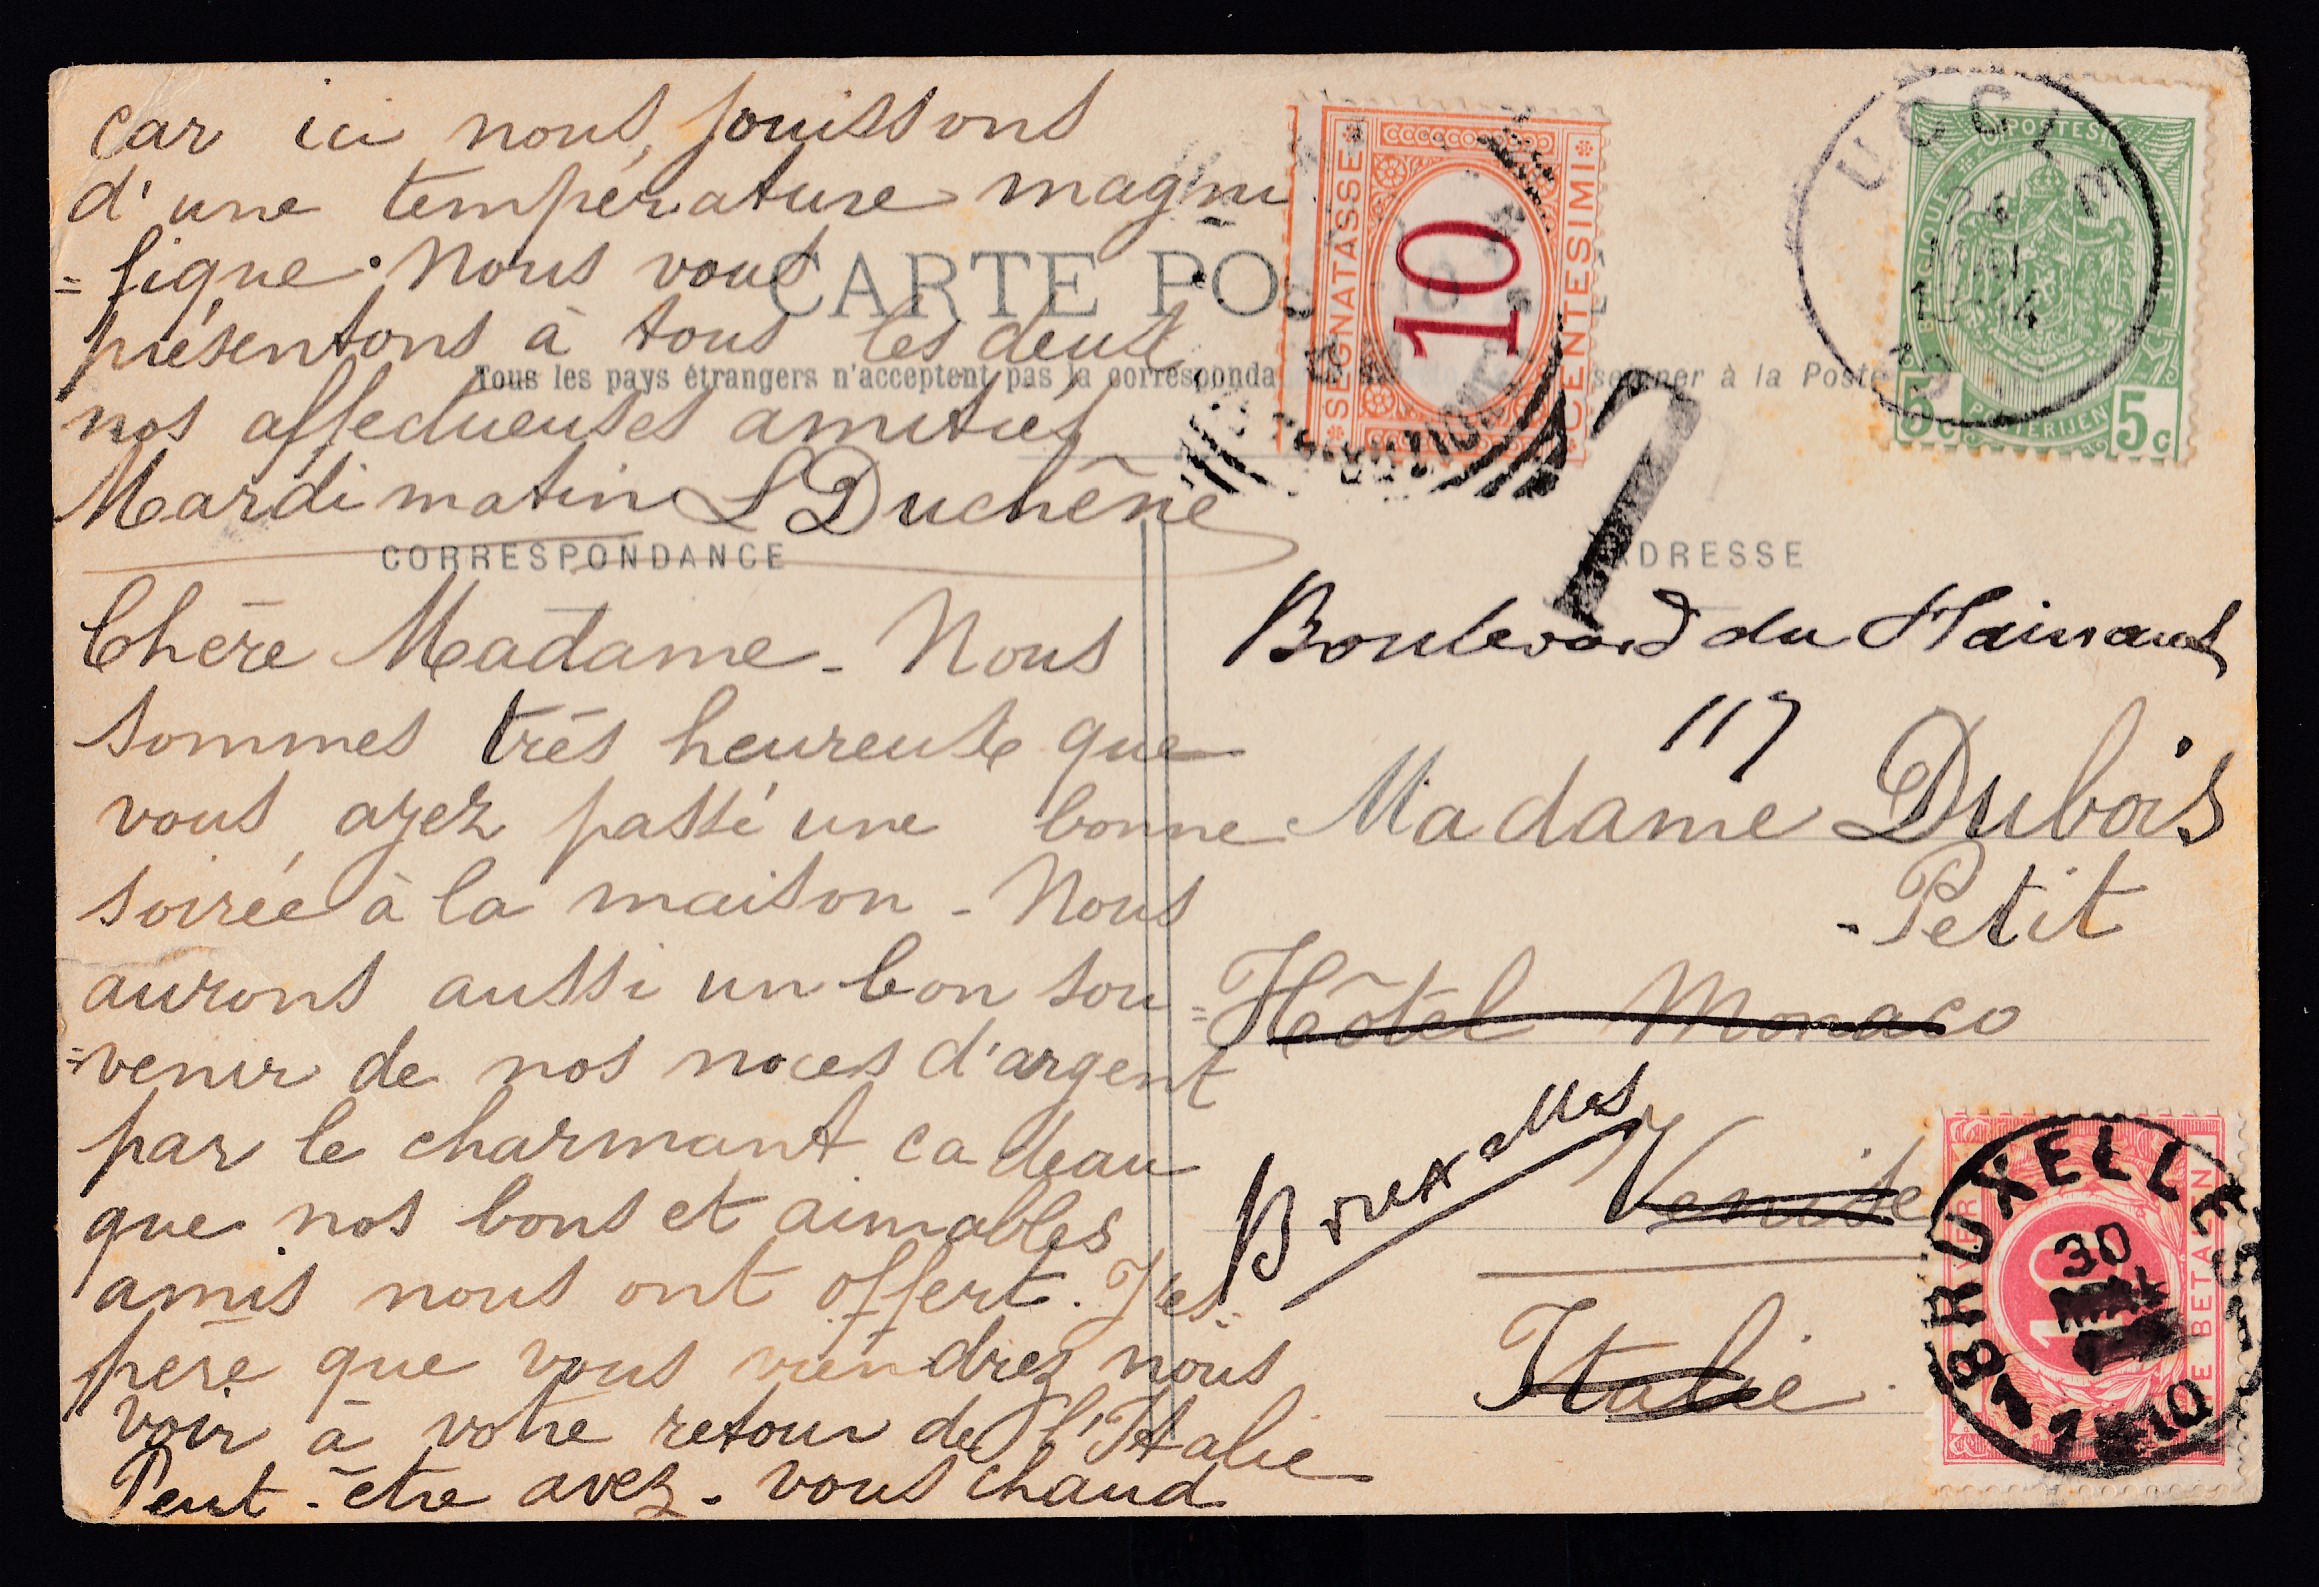 car ici nous jouissons
d'une température magni
=fique. Nous vous
présentons à tous les deux
nos affectueuses amitiés
Mardi matin L Duchêne
CARTE POS
Tous les pays étrangers n'acceptent pas la corresponda
seigner à la Poste
CORRESPONDANCE
Chère Madame - Nous
sommes très heureuse que
vous ayez passé une bonne
soirée à la maison - Nous
aurons aussi un bon sou=
=venir de nos noces d'argent
par le charmant cadeau
que nos bons et aimables
amis nous ont offert. J'es=
père que vous viendrez nous
voir à votre retour de l'Italie
Peut-être avez-vous chaud
SEGNATASSE
10
CENTESIMI
T
UCCLE
POSTES
BELGIQUE
BELGIË
5c
POSTERIJEN
5c
ADRESSE
Boulevard du Hainaut
117
Madame Dubois
-Petit
Hôtel Monaco
Bruxelles
Venise
Italie
BRUXELLES
30
MAI
10
TE BETALEN